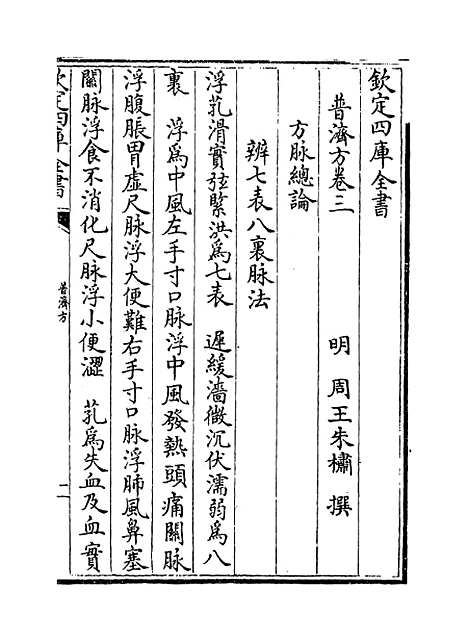 欽定四庫全書
普濟方卷三
明 周王朱橚 撰
方脉總論
辨七表八裏脉法
浮芤滑實弦緊洪為七表 遲緩濇微沉伏濡弱為八
裏 浮為中風左手寸口脉浮中風發熱頭痛關脉
浮腹脹胃虚尺脉浮大便難右手寸口脉浮肺風鼻塞
關脉浮食不消化尺脉浮小便澀 芤為失血及血實
欽定四庫全書
普濟方